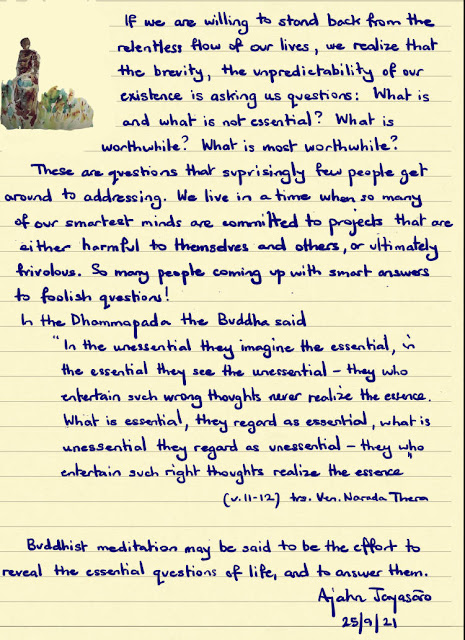 If we are willing to stand back from the
relentless flow of our lives, we realize that
the brevity, the unpredictability of our
existence is asking us questions: What is
and what is not essential? What is
worthwhile? What is most worthwhile?
These are questions that suprisingly few people get
around to addressing. We live in a time when so many
of our smartest minds are committed to projects that are
either harmful to themselves and others, or ultimately
frivolous. So many people coming up with smart answers
to foolish questions!
In the Dhammapada the Buddha said
"In the unessential they imagine the essential, in
the essential they see the unessential – they who
entertain such wrong thoughts never realize the essence.
What is essential, they regard as essential, what is
unessential they regard as unessential – they who
entertain such right thoughts realize the essence"
(v.11-12) trs. Ven. Narada Thera
Buddhist meditation may be said to be the effort to
reveal the essential questions of life, and to answer them.
Ajahn Jayasāro
25/9/21